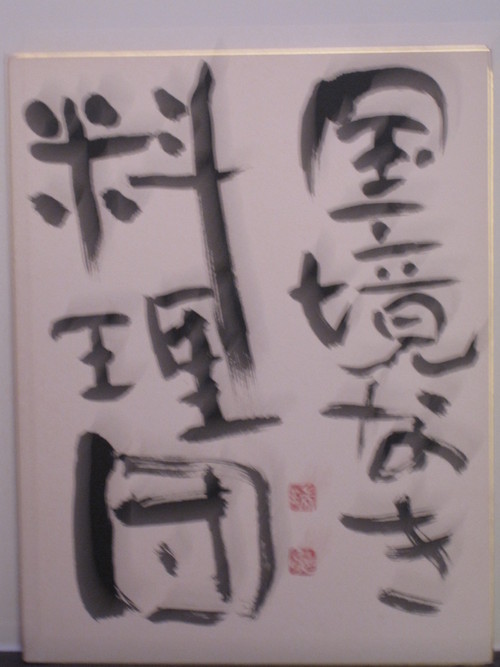 国境なき
料理団